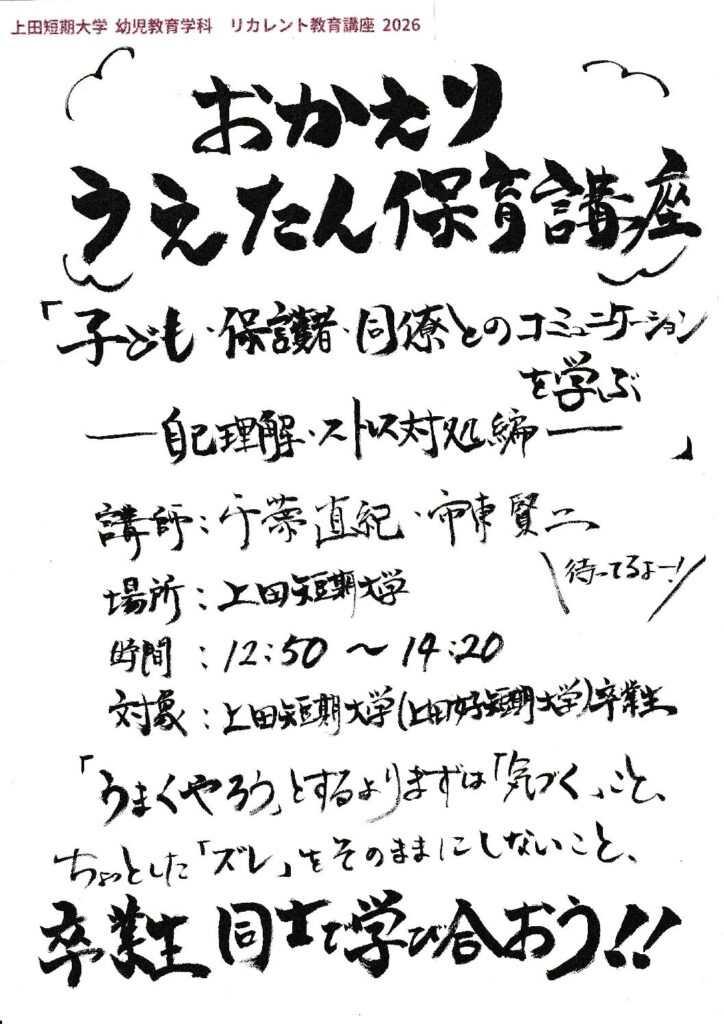 上田短期大学 幼児教育学科 リカレント教育講座 2026
おかえり
うえたん保育講座
「子ども・保護者・同僚とのコミュニケーション
を学ぶ
―自己理解・ストレス対処編―」
講師：千葉直紀・市東賢二
待ってるよー！
場所：上田短期大学
時間：12:50～14:20
対象：上田短期大学(上田女子短期大学)卒業生
「うまくやろう」とするよりまずは「気づく」こと、
ちょっとした「ズレ」をそのままにしないこと、
卒業生同士で学び合おう!!